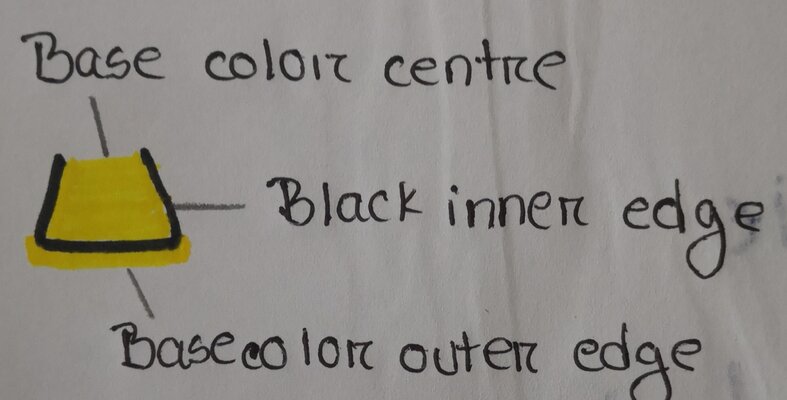 Base color centre
Black inner edge
Basecolor outer edge